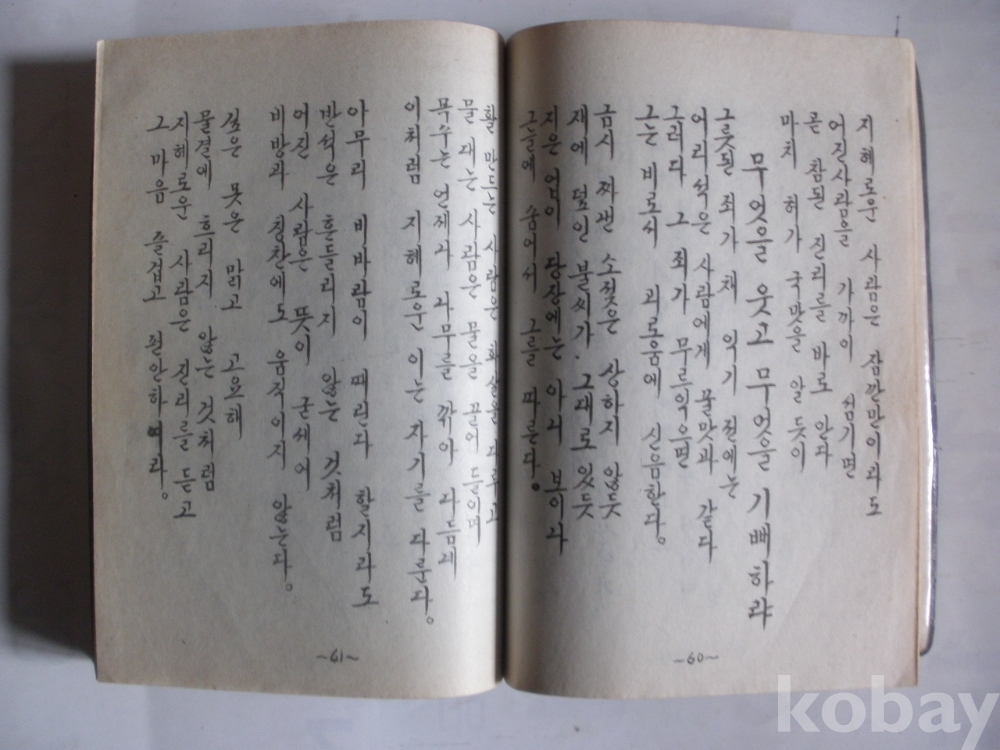 지혜로운 사람은 잠깐만이라도
어진사람을 가까이 섬기면
곧 참된 진리를 바로 안다
마치 혀가 국맛을 알듯이
무엇을 웃고 무엇을 기뻐하랴
그릇된 죄가 채 익기 전에는
어리석은 사람에게 꿀맛과 같다
그러다 그 죄가 무르익으면
그는 비로서 괴로움에 신음한다.
금시 짜낸 소젖은 상하지 않듯
재에 덮인 불씨가 그대로 있듯
지은 업이 당장에는 아니 보이나
그늘에 숨어서 그를 따른다.
~60~
활 만드는 사람은 화살을 다루고
물 대는 사람은 물을 끌어 들이며
목수는 언제나 나무를 깎아 다듬네
이처럼 지혜로운 이는 자기를 다룬다.
아무리 비바람이 때린다 할지라도
반석은 흔들리지 않는 것처럼
어진 사람은 뜻이 굳세어
비방과 칭찬에도 움직이지 않는다.
깊은 못은 맑고 고요해
물결에 흐리지 않는 것처럼
지혜로운 사람은 진리를 듣고
그 마음 즐겁고 편안하
~61~
kobay